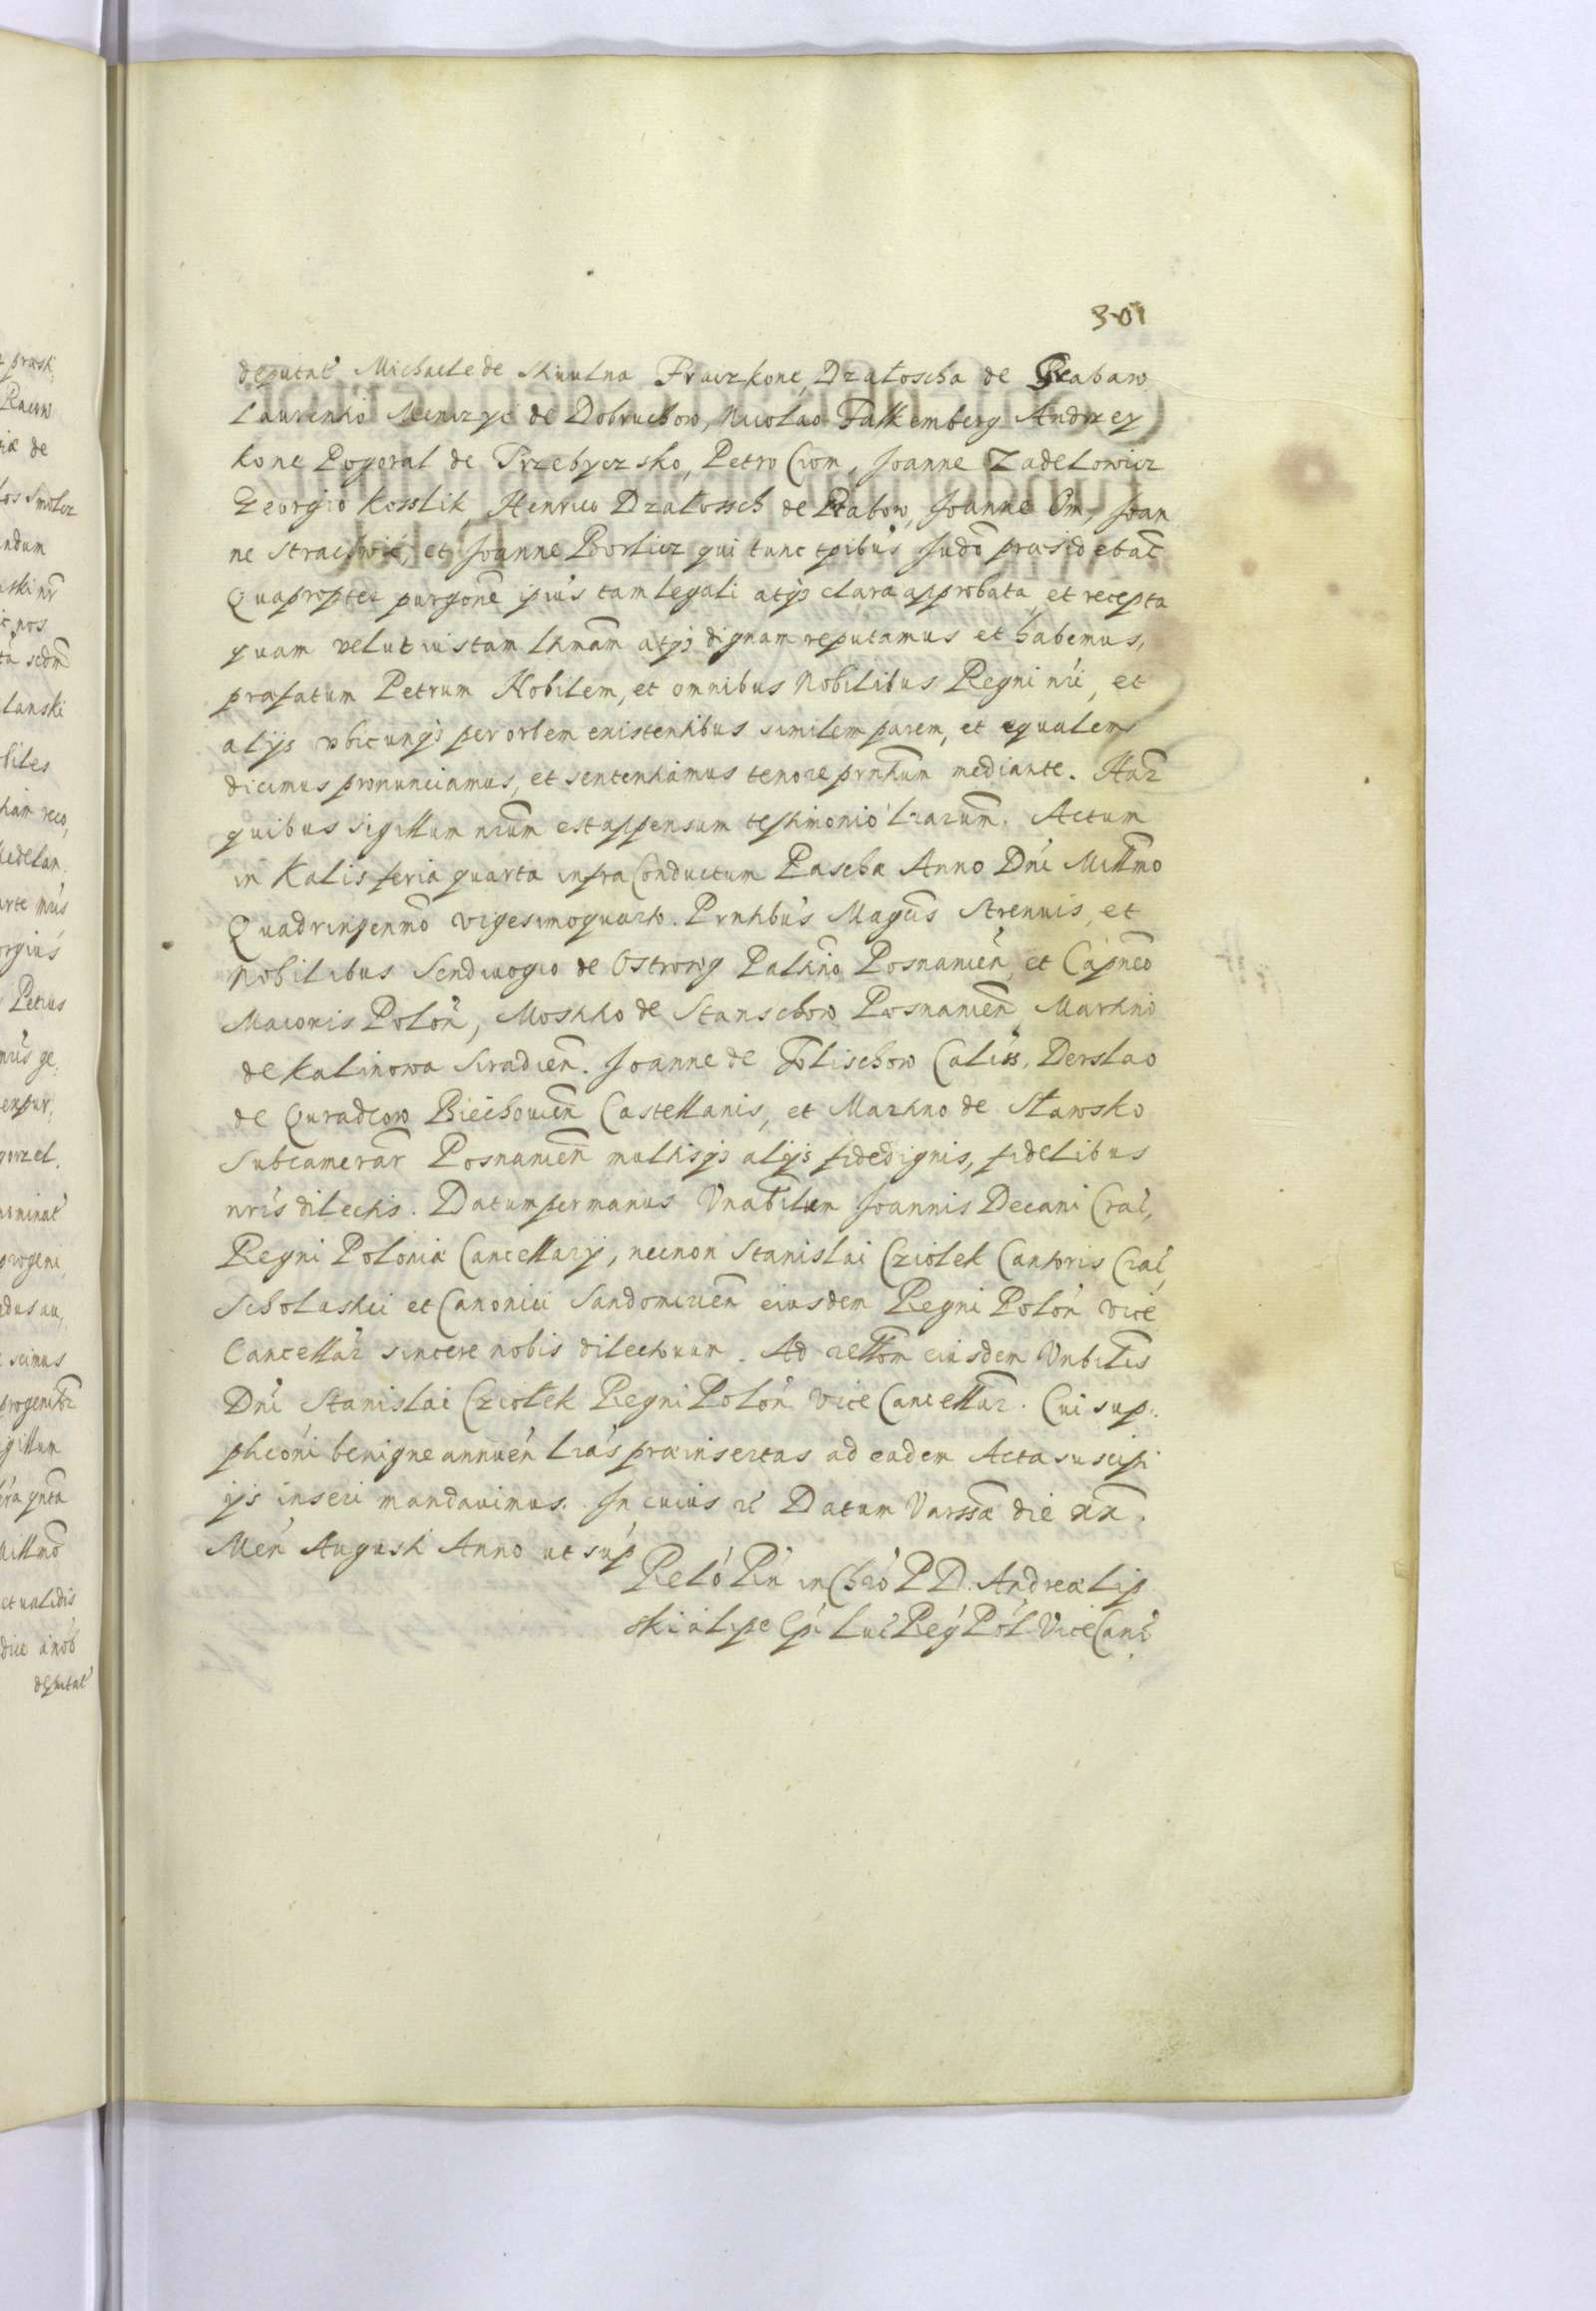 301
deputat Michaele de Skuulna Fraczkone, Dzatoscha de Grabaw
Laurentio Menczyc de Dobruchow, Nicolao Falkemberg Andrzey
kone Pogoral de Przebyczsko, Petro Crom, Joanne Zadelowicz
Georgio Kosslik, Henrico Dzatossch de Rabow, Joanne Om, Joan
ne Strachwic, et Joanne Borlicz qui tunc tpibus Judo præsidebat
Quapropter purgone ipius tam legali atqs clara approbata et recepta
quam velut iustam ltimam atqs dignam reputamus et habemus,
præfatum Petrum Nobilem, et omnibus Nobilibus Regni nri, et
alijs vbicunqs per orbem existentibus similem parem, et equalem
dicimus pronunciamus, et sententiamus tenore prntium mediante. Harz
quibus sigillum nrum est appensum testimonio lrarum. Actum
in Kalis feria quarta infra Conductum Paschæ Anno Dni Millmo
Quadringenmo vigesimoquarto. Prntibus Magcis Strenuis, et
Nobilibus Sendivogio de Ostrorog Palatino Posnanien, et Capneo
Maioris Polon, Mosthko de Stanschow Posnanien, Martino
de Kalinowa Siradien. Joanne de Tolischow Caliss, Derslao
de Quradcow Biechouien Castellanis, et Martino de Sławsko
Subcamerar Posnanien multisqs alijs fidedignis, fidelibus
nris dilectis. Datum per manus Vnabilium Joannis Decani Cral,
Regni Poloniæ Cancellarij, necnon Stanislai Cziołek Cantoris Cral,
Scholastici et Canonici Sandomirien eiusdem Regni Polon vice
Cancellar sincere nobis dilectorum. Ad rellom eiusdem Vnbilis
Dni Stanislai Cziołek Regni Polon vice Cancellar. Cui sup:
plicóni benigne annuen lras præinsertas ad eadem Acta suscipi
ijs inseri mandauimus. In cuius rei Datum Varssæ die xx.
Men Augusti Anno ut sup
Relo Rn in Chro P D. Andreæ Lip
ski a Lipe Epi Luc Reg Pol Vice Canc